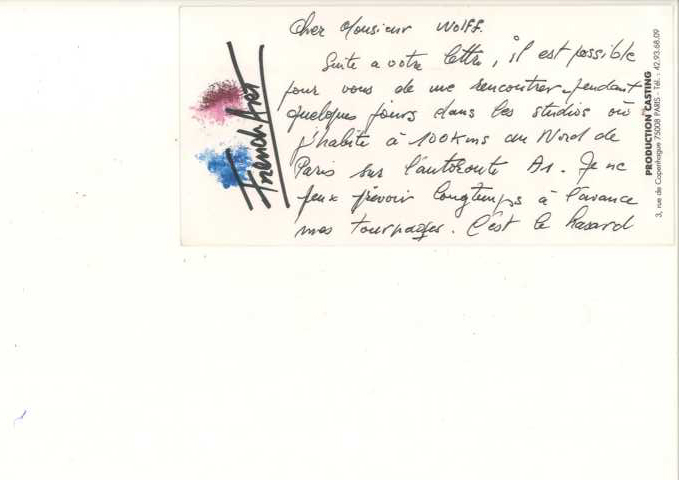 Cher Monsieur Wolff.
Suite a votre lettre, il est possible
pour vous de me rencontrer pendant
quelques jours dans les studios où
j'habite à 100 Kms au Nord de
Paris sur l'autoroute A1. Je ne
peux prévoir longtemps à l'avance
mes tournages. C'est le hasard
French Art
PRODUCTION CASTING
3, rue de Copenhague 75008 PARIS - Tél. : 42.93.68.09